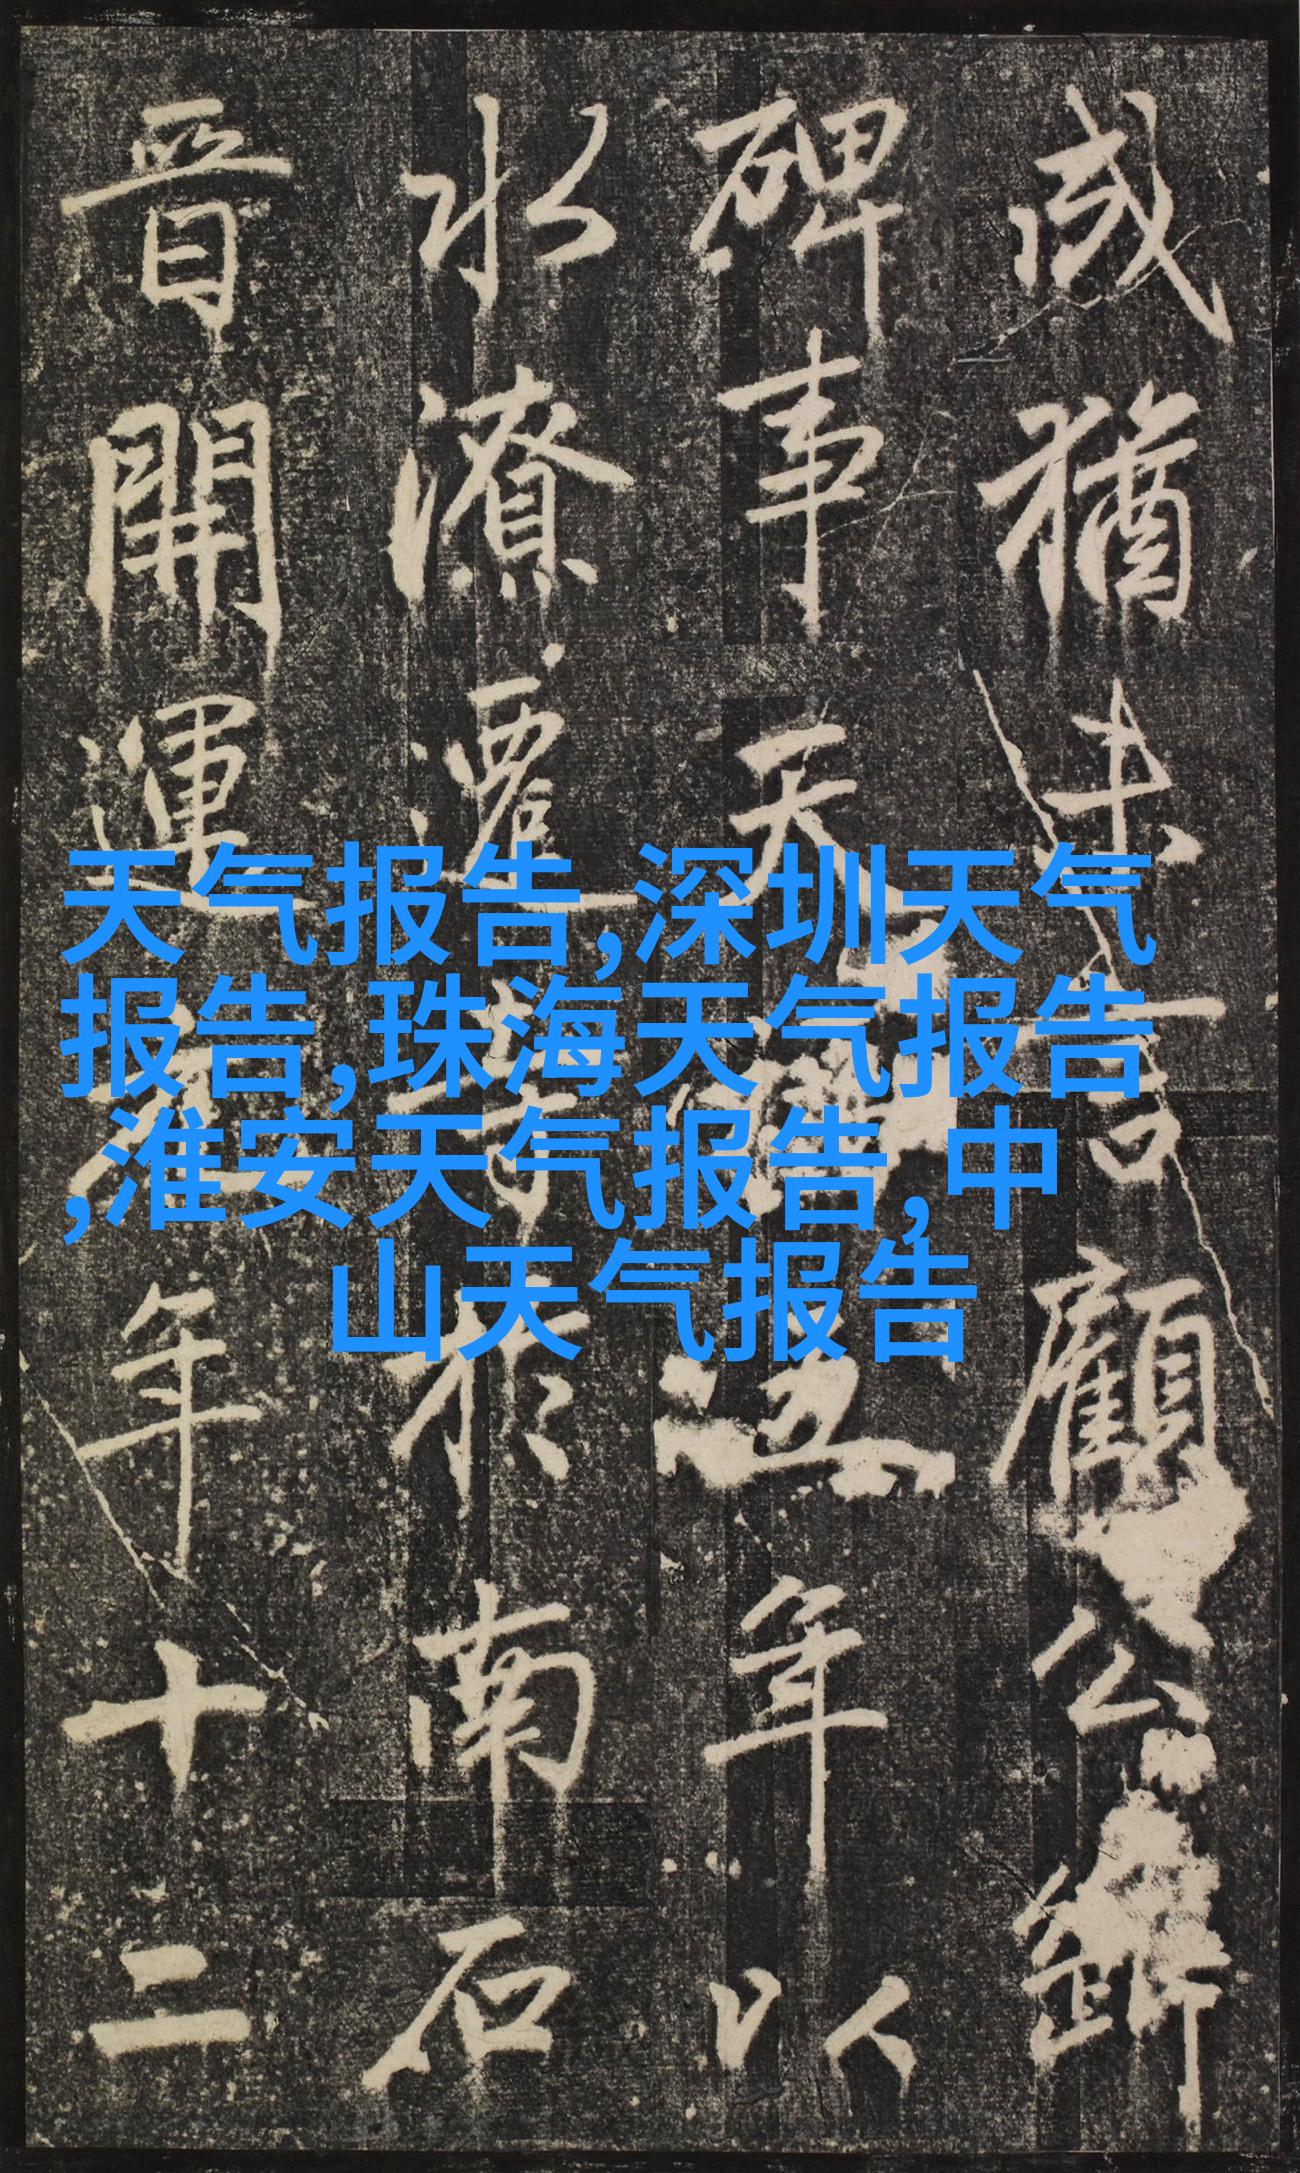 猶未言顧公
碑事天福五年以
水潦遷寺於南石
晉開運年十二
天气报告,深圳天气
报告,珠海天气报告
,淮安天气报告,中
山天气报告